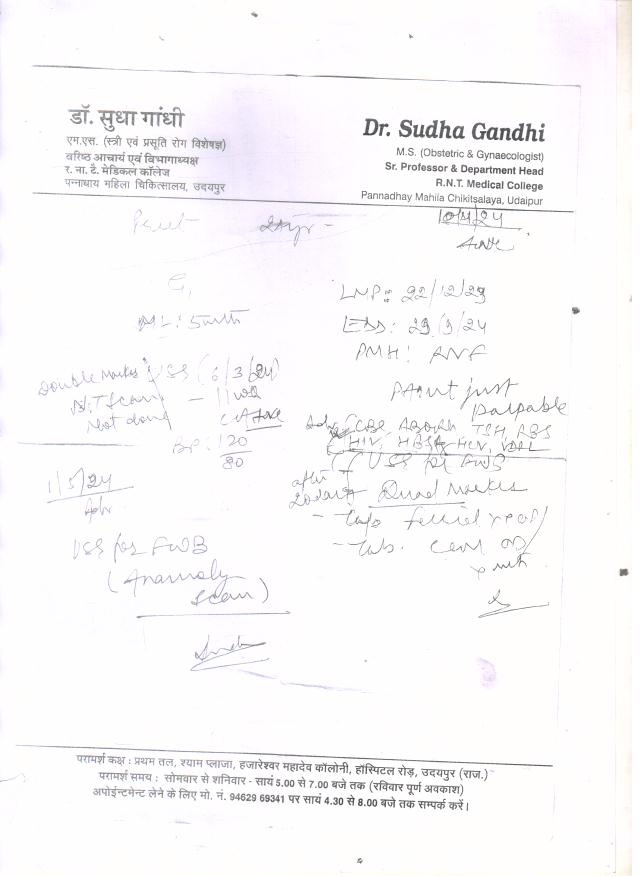 डॉ. सुधा गांधी
एम.एस. (स्त्री एवं प्रसूति रोग विशेषज्ञ)
वरिष्ठ आचार्य एवं विभागाध्यक्ष
र. ना. टै. मेडिकल कॉलेज
पन्नाधाय महिला चिकित्सालय, उदयपुर
Dr. Sudha Gandhi
M.S. (Obstetric & Gynaecologist)
Sr. Professor & Department Head
R.N.T. Medical College
Pannadhay Mahila Chikitsalaya, Udaipur
10/4/24
LMP: 22/12/23
EDD: 29/9/24
PMH:
ML: 5 mth
Double Marker
USG (6/3/24)
NT Scan - 11 w
Not done
BP: 120
80
P/A: ut just
palpable
CBC ABORh TSH RBS
HIV, HBSAg HCV, VDRL
USG for FWB
after
20 days
Quad Marker
1/5/24
Adv
USG for FWB
(Anamoly
Scan)
परामर्श कक्ष : प्रथम तल, श्याम प्लाजा, हजारेश्वर महादेव कॉलोनी, हॉस्पिटल रोड़, उदयपुर (राज.)
परामर्श समय : सोमवार से शनिवार - सायं 5.00 से 7.00 बजे तक (रविवार पूर्ण अवकाश)
अपोईन्टमेन्ट लेने के लिए मो. नं. 94629 69341 पर सायं 4.30 से 8.00 बजे तक सम्पर्क करें।